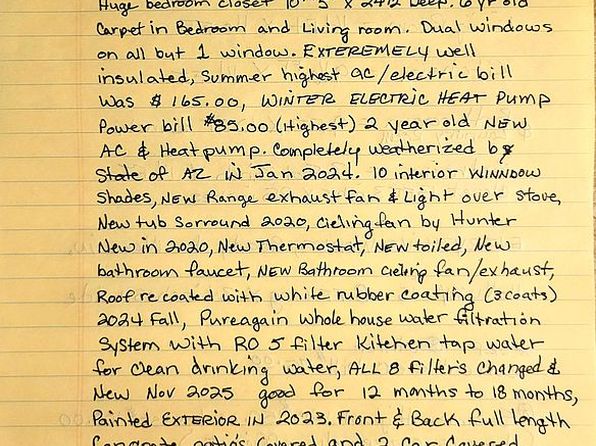 Huge bedroom closet 10' 5" x 24 1/2 Deep. 6 yr old
Carpet in Bedroom and Living room. Dual windows
on all but 1 window. EXTEREMELY well
insulated, Summer highest ac/electric bill
was $165.00, WINTER ELECTRIC HEAT Pump
Power bill $85.00 (Highest) 2 year old NEW
AC & Heatpump. Completely weatherized by
State of AZ IN Jan 2024. 10 interior WINNDOW
Shades, NEW Range exhaust fan & Light over stove,
New tub Sorround 2020, Cielingfan by Hunter
New in 2020, New Thermostat, NEW toiled, New
bathroom faucet, NEW Bathroom Cieling fan/exhaust,
Roof re coated with white rubber coating (3 coats)
2024 Fall, Pureagain whole house water filtration
System with RO 5 filter Kitchen tap water
for clean drinking water, ALL 8 filter's Changed &
New Nov 2025 good for 12 months to 18 months,
Painted EXTERIOR IN 2023. Front & Back full length
Concrete patio's Covered and 2 Car Covered